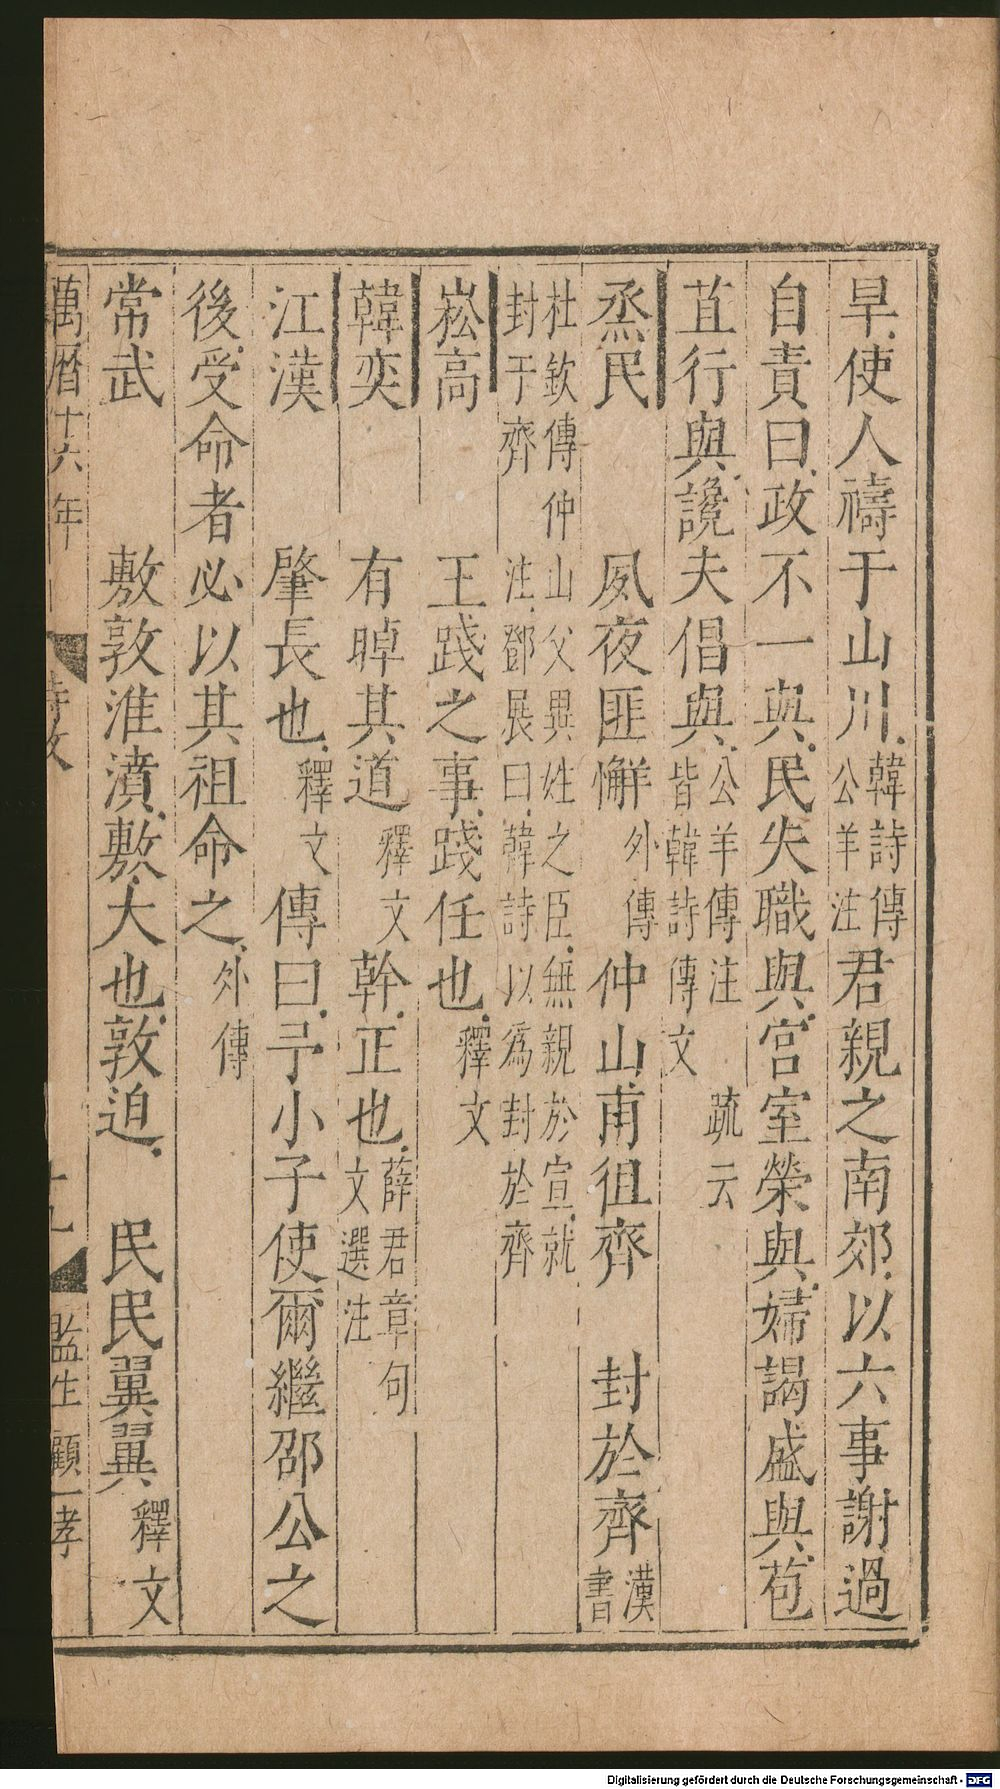 旱使人禱于山川韓詩傳公羊注君親之南郊以六事謝過
自責曰政不一與民失職與宮室榮與婦謁盛與苞
苴行與讒夫倡與公羊傳注疏云皆韓詩傳文
烝民 夙夜匪懈外傳仲山甫徂齊 封於齊漢書
杜欽傳仲山父異姓之臣無親於宣就
封于齊注鄧展曰韓詩以為封於齊
崧高 王踐之事踐任也釋文
韓奕 有晫其道釋文幹正也薛君章句文選注
江漢 肇長也釋文傳曰予小子使爾繼邵公之
後受命者必以其祖命之外傳
常武 敷敦淮濆敷大也敦迫 民民翼翼釋文
萬曆十六年 詩攷 十九 監生顧一孝
Digitalisierung gefördert durch die Deutsche Forschungsgemeinschaft - DFG